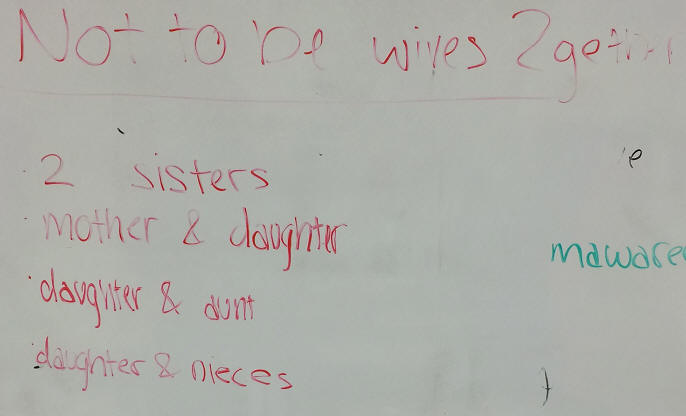 Not to be wives 2gether
2 sisters
mother & daughter
daughter & aunt
daughter & nieces